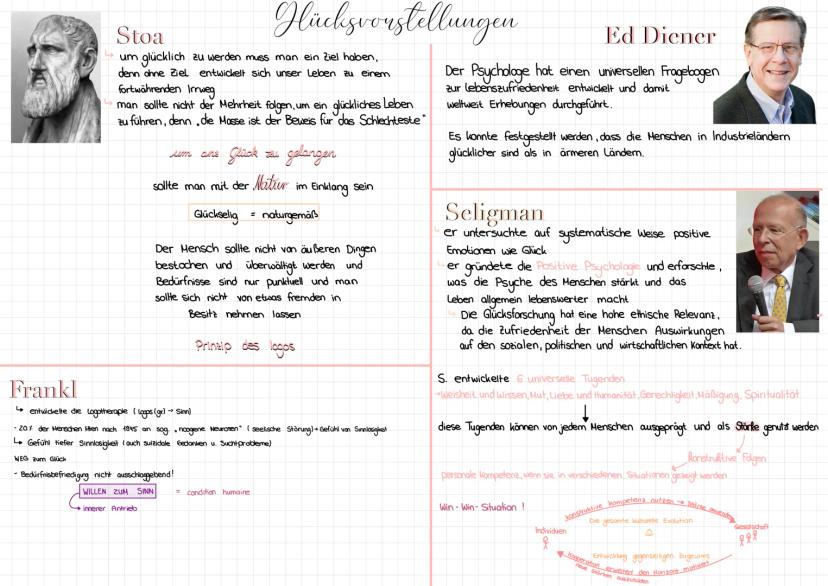 Glücksvorstellungen
Stoa
um glücklich zu werden muss man ein Ziel haben,
denn ohne Ziel entwickelt sich unser Leben zu einem
fortwährenden Irrweg
man sollte nicht der Mehrheit folgen, um ein glückliches Leben
zu führen, denn „die Masse ist der Beweis für das Schlechteste"
um ans Glück zu gelangen
sollte man mit der Natur im Einklang sein
Glückselig = naturgemäß
Der Mensch sollte nicht von äußeren Dingen
bestochen und überwältigt werden und
Bedürfnisse sind nur punktuell und man
sollte sich nicht von etwas fremden in
Besitz nehmen lassen
Prinzip des logos
Frankl
↳ entwickelte die Logotherapie (logos (gr.) → Sinn)
- 20% der Menschen litten nach 1945 an sog. „noogene Neurosen" (seelische Störung) → Gefühl von Sinnlosigkeit
↳ Gefühl tiefer Sinnlosigkeit (auch suizidale Gedanken u. Suchtprobleme)
WEG zum Glück
- Bedürfnisbefriedigung nicht ausschlaggebend!
WILLEN ZUM SINN = condition humaine
→ innerer Antrieb
Ed Diener
Der Psychologe hat einen universellen Fragebogen
zur Lebenszufriedenheit entwickelt und damit
weltweit Erhebungen durchgeführt.
Es konnte festgestellt werden, dass die Menschen in Industrieländern
glücklicher sind als in ärmeren Ländern.
Seligman
er untersuchte auf systematische Weise positive
Emotionen wie Glück
er gründete die Positive Psychologie und erforschte,
was die Psyche des Menschen stärkt und das
Leben allgemein lebenswerter macht
Die Glücksforschung hat eine hohe ethische Relevanz,
da die Zufriedenheit der Menschen Auswirkungen
auf den sozialen, politischen und wirtschaftlichen Kontext hat.
S. entwickelte 6 universelle Tugenden
→ Weisheit und Wissen, Mut, Liebe und Humanität, Gerechtigkeit, Mäßigung, Spiritualität
diese Tugenden können von jedem Menschen ausgeprägt und als Stärke genutzt werden
konstruktive Folgen
personale Kompetenz, wenn sie in verschiedenen Situationen gezeigt werden
Win-Win-Situation!
konstruktive Kompetenz nutzen → Stärke anwenden
Die gesamte kulturelle Evolution
Individuen
Gesellschaft
Entwicklung gegenseitigen
Kooperation erweitert den Horizont
neue Stärken